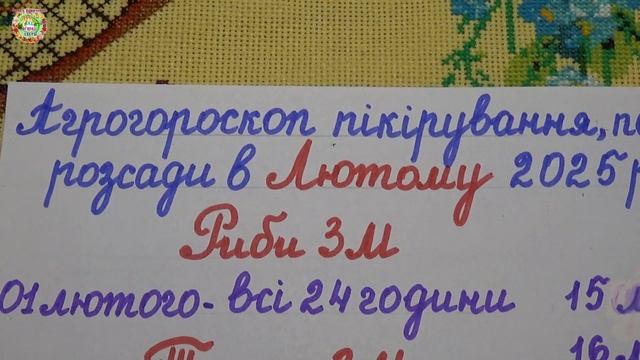 Агрогороскоп пікірування, п
розсади в Лютому 2025р
Риби 3М
01 лютого - всі 24 години 15 л
16 л